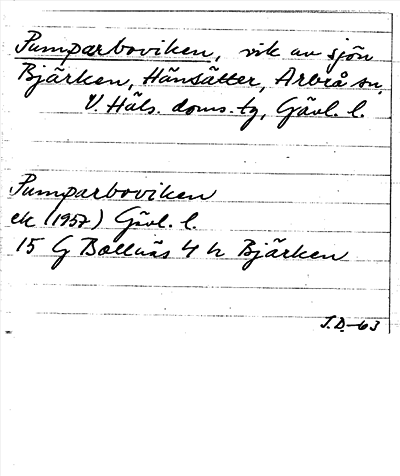 Pumparboviken, vik av sjön
Bjärken, Hänsätter, Arbrå sn,
V. Häls. doms. tg, Gävl. l.
Pumparboviken
ek (1957) Gävl. l.
15 G Bollnäs 4 h Bjärken
J.D.-63